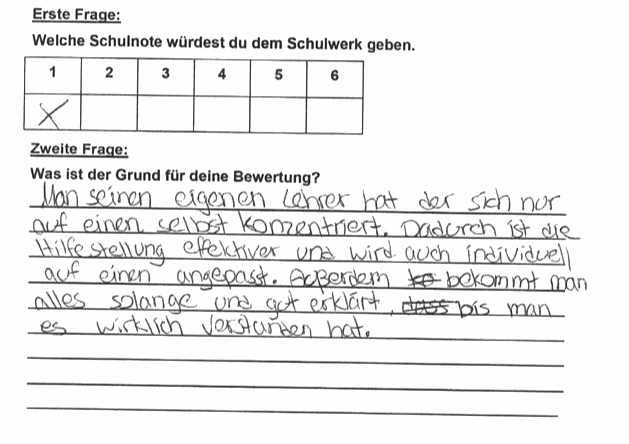 Erste Frage:
Welche Schulnote würdest du dem Schulwerk geben.
1 2 3 4 5 6
X
Zweite Frage:
Was ist der Grund für deine Bewertung?
Man seinen eigenen Lehrer hat der sich nur
auf einen selbst konzentriert. Dadurch ist die
Hilfestellung effektiver und wird auch individuell
auf einen angepasst. Außerdem bekommt man
alles solange und gut erklärt, bis man
es wirklich verstanden hat.